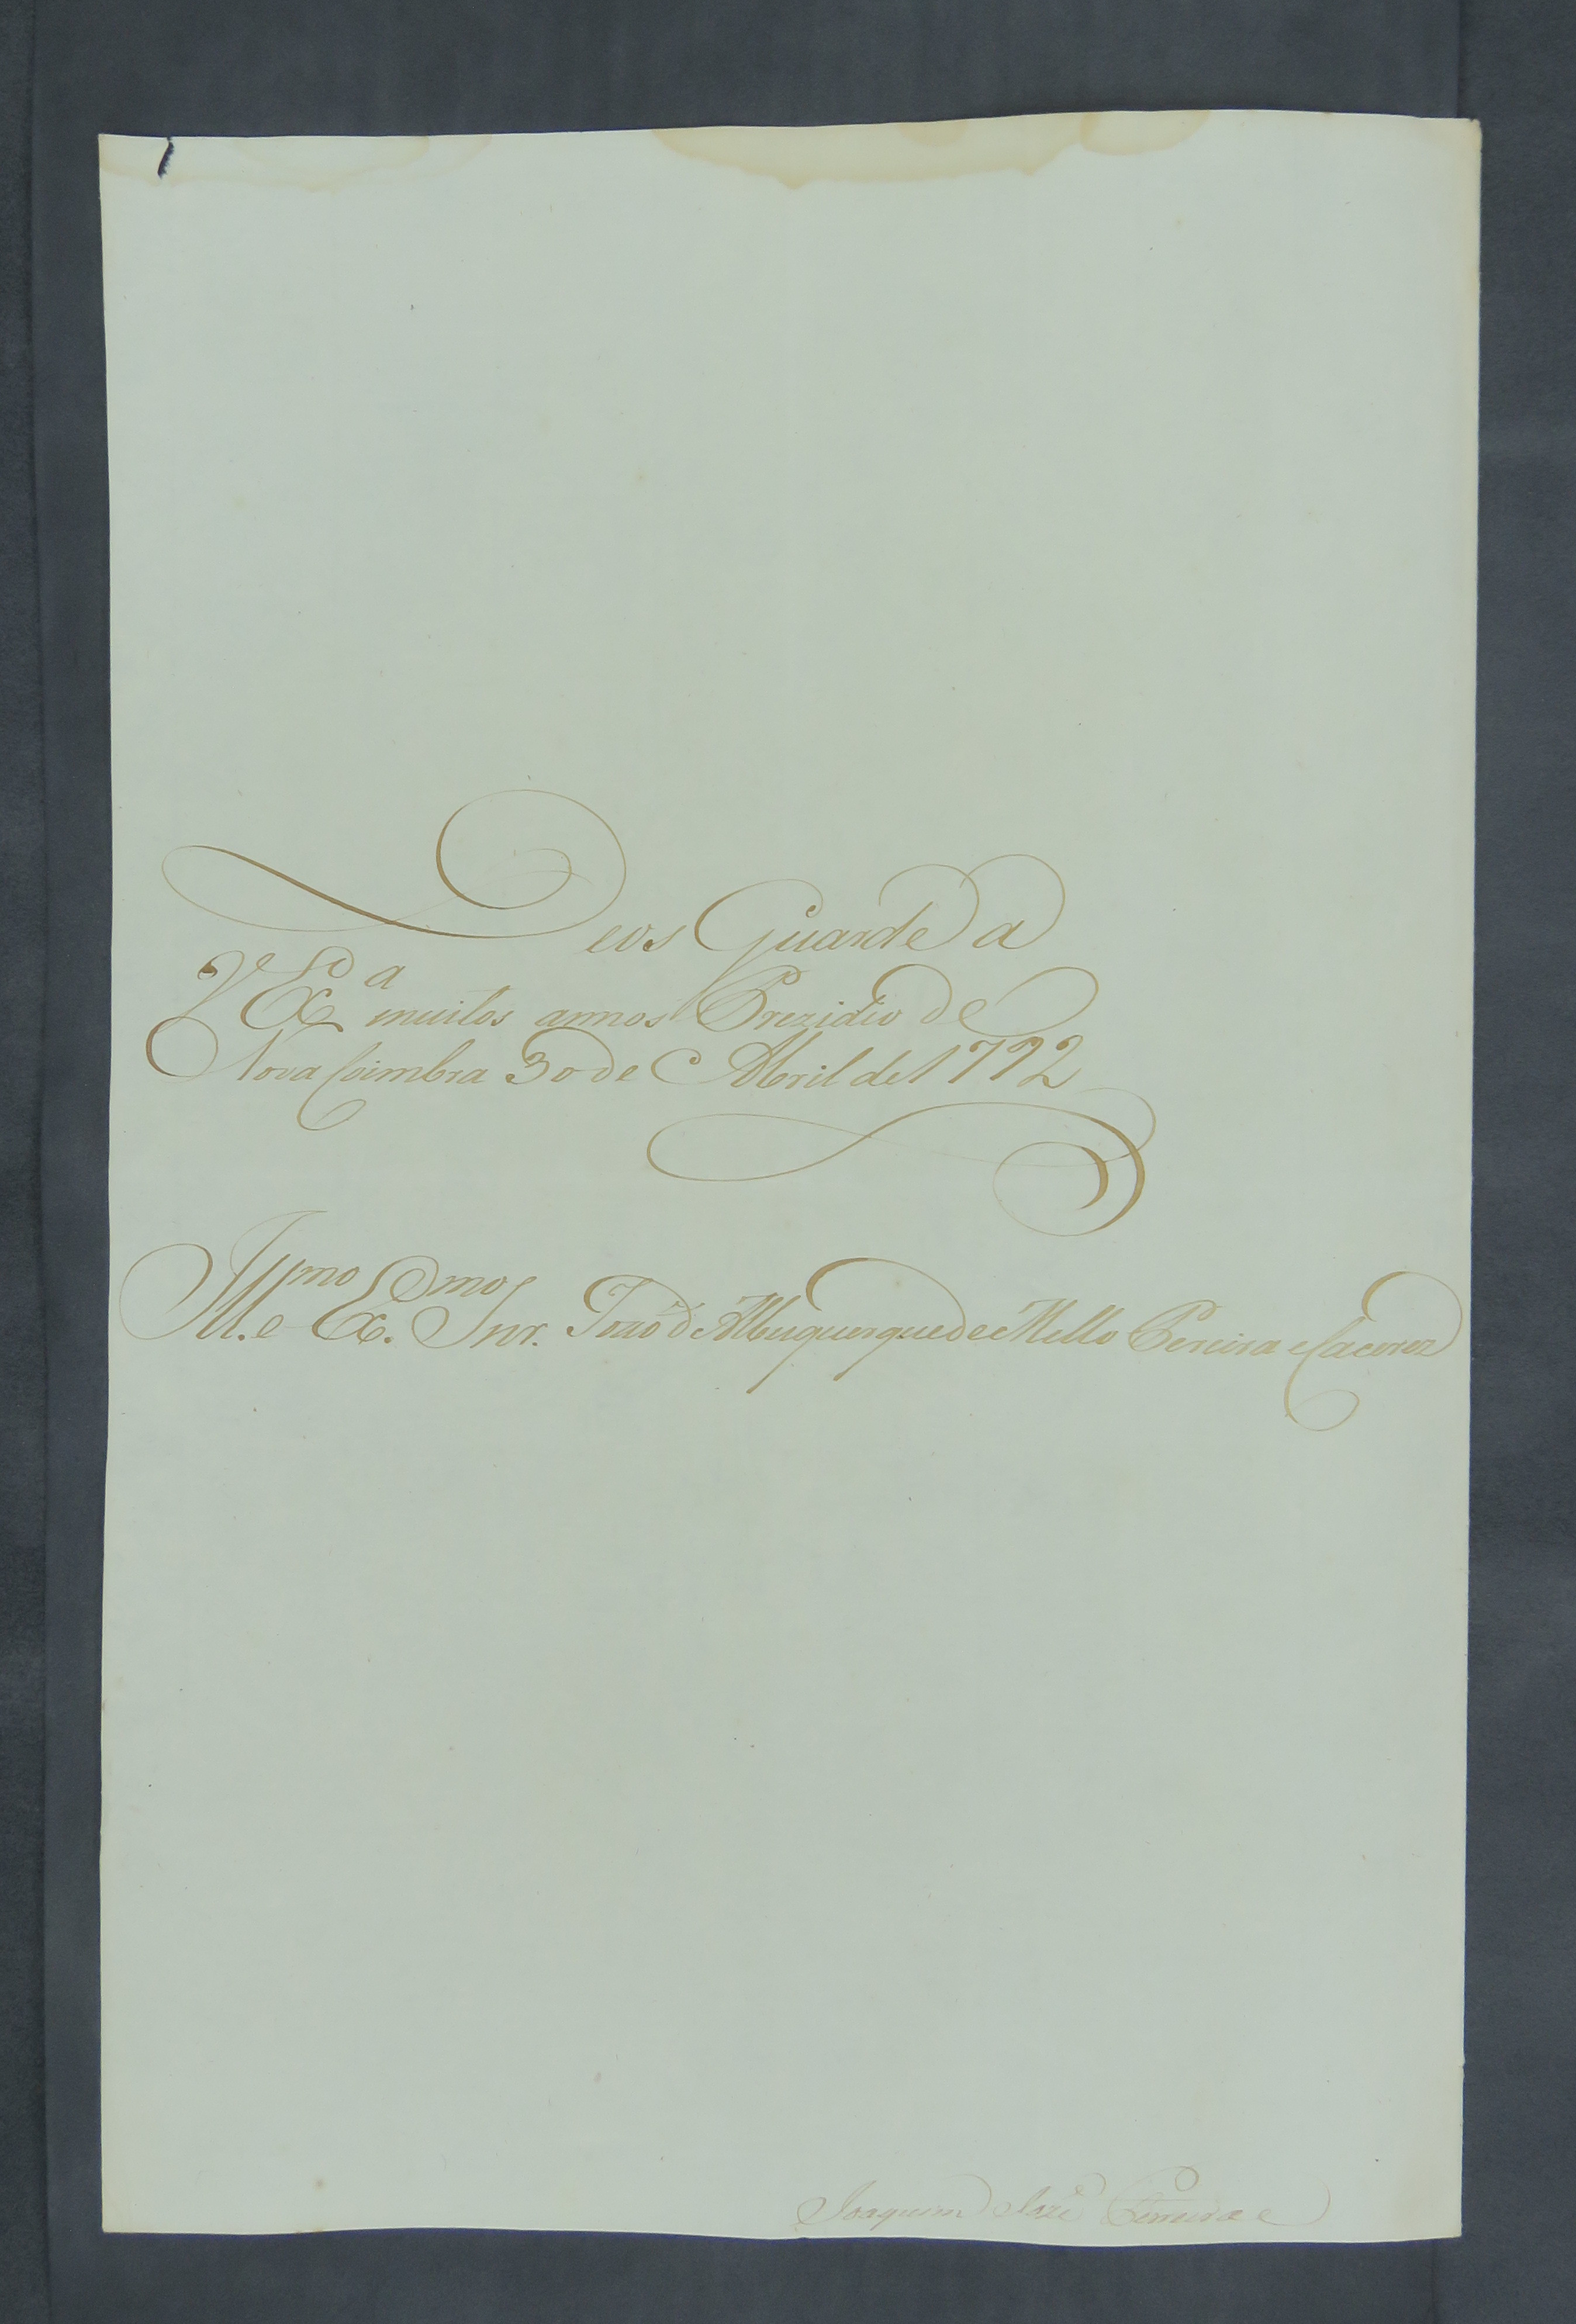 Deos Guarde a
V Exa muitos annos Prezidio de
Nova Coimbra 30 de Abril de 1792
Illmo e Exmo Snr. João d'Albuquerque de Mello Pereira e Cacerez
Joaquim Joze Ferreira